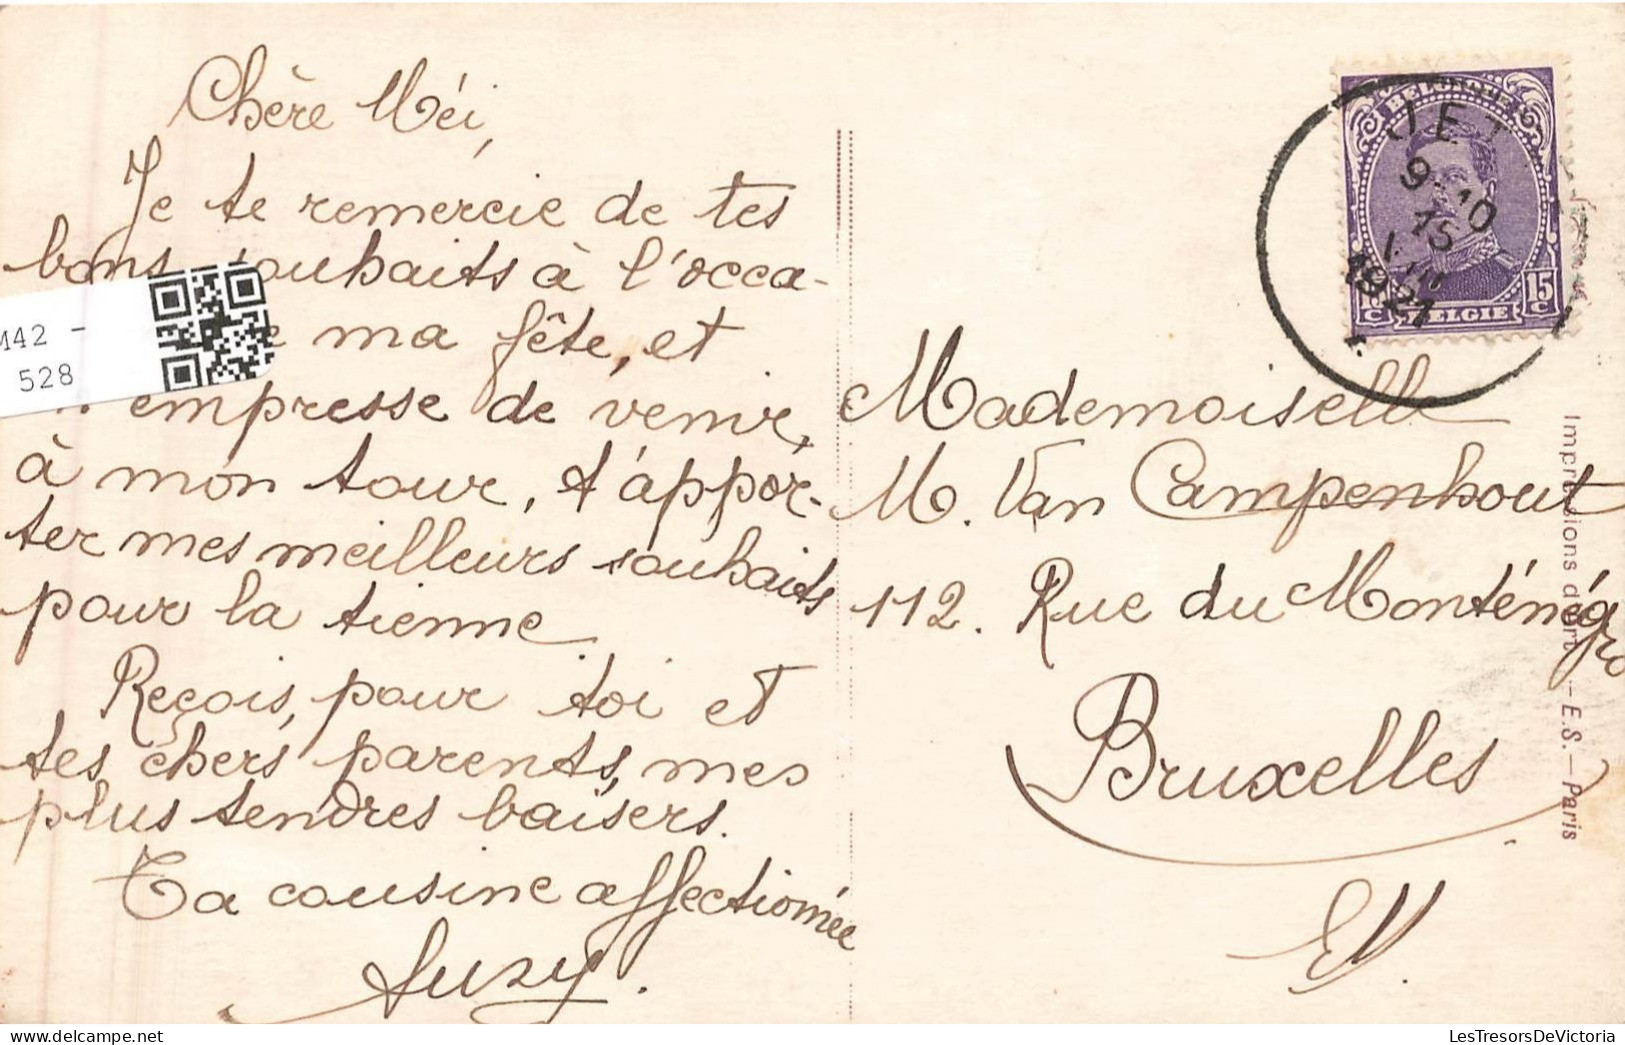 Chère Méi,
Je te remercie de tes
bons souhaits à l'occa-
ma fête, et
empresse de venir,
à mon tour, t'appor-
ter mes meilleurs souhaits
pour la tienne
Reçois, pour toi et
tes chers parents, mes
plus tendres baisers.
Ta cousine affectionnée
Suzy.
M42 -
528
BELGIQUE
JET
9-10
15
VIII
1921
15
C
C
BELGIE
Mademoiselle
M. Van Campenhout
112. Rue du Monténégro
Bruxelles
EV.
Impressions d'Art. — E.S. — Paris
LesTresorsDeVictoria